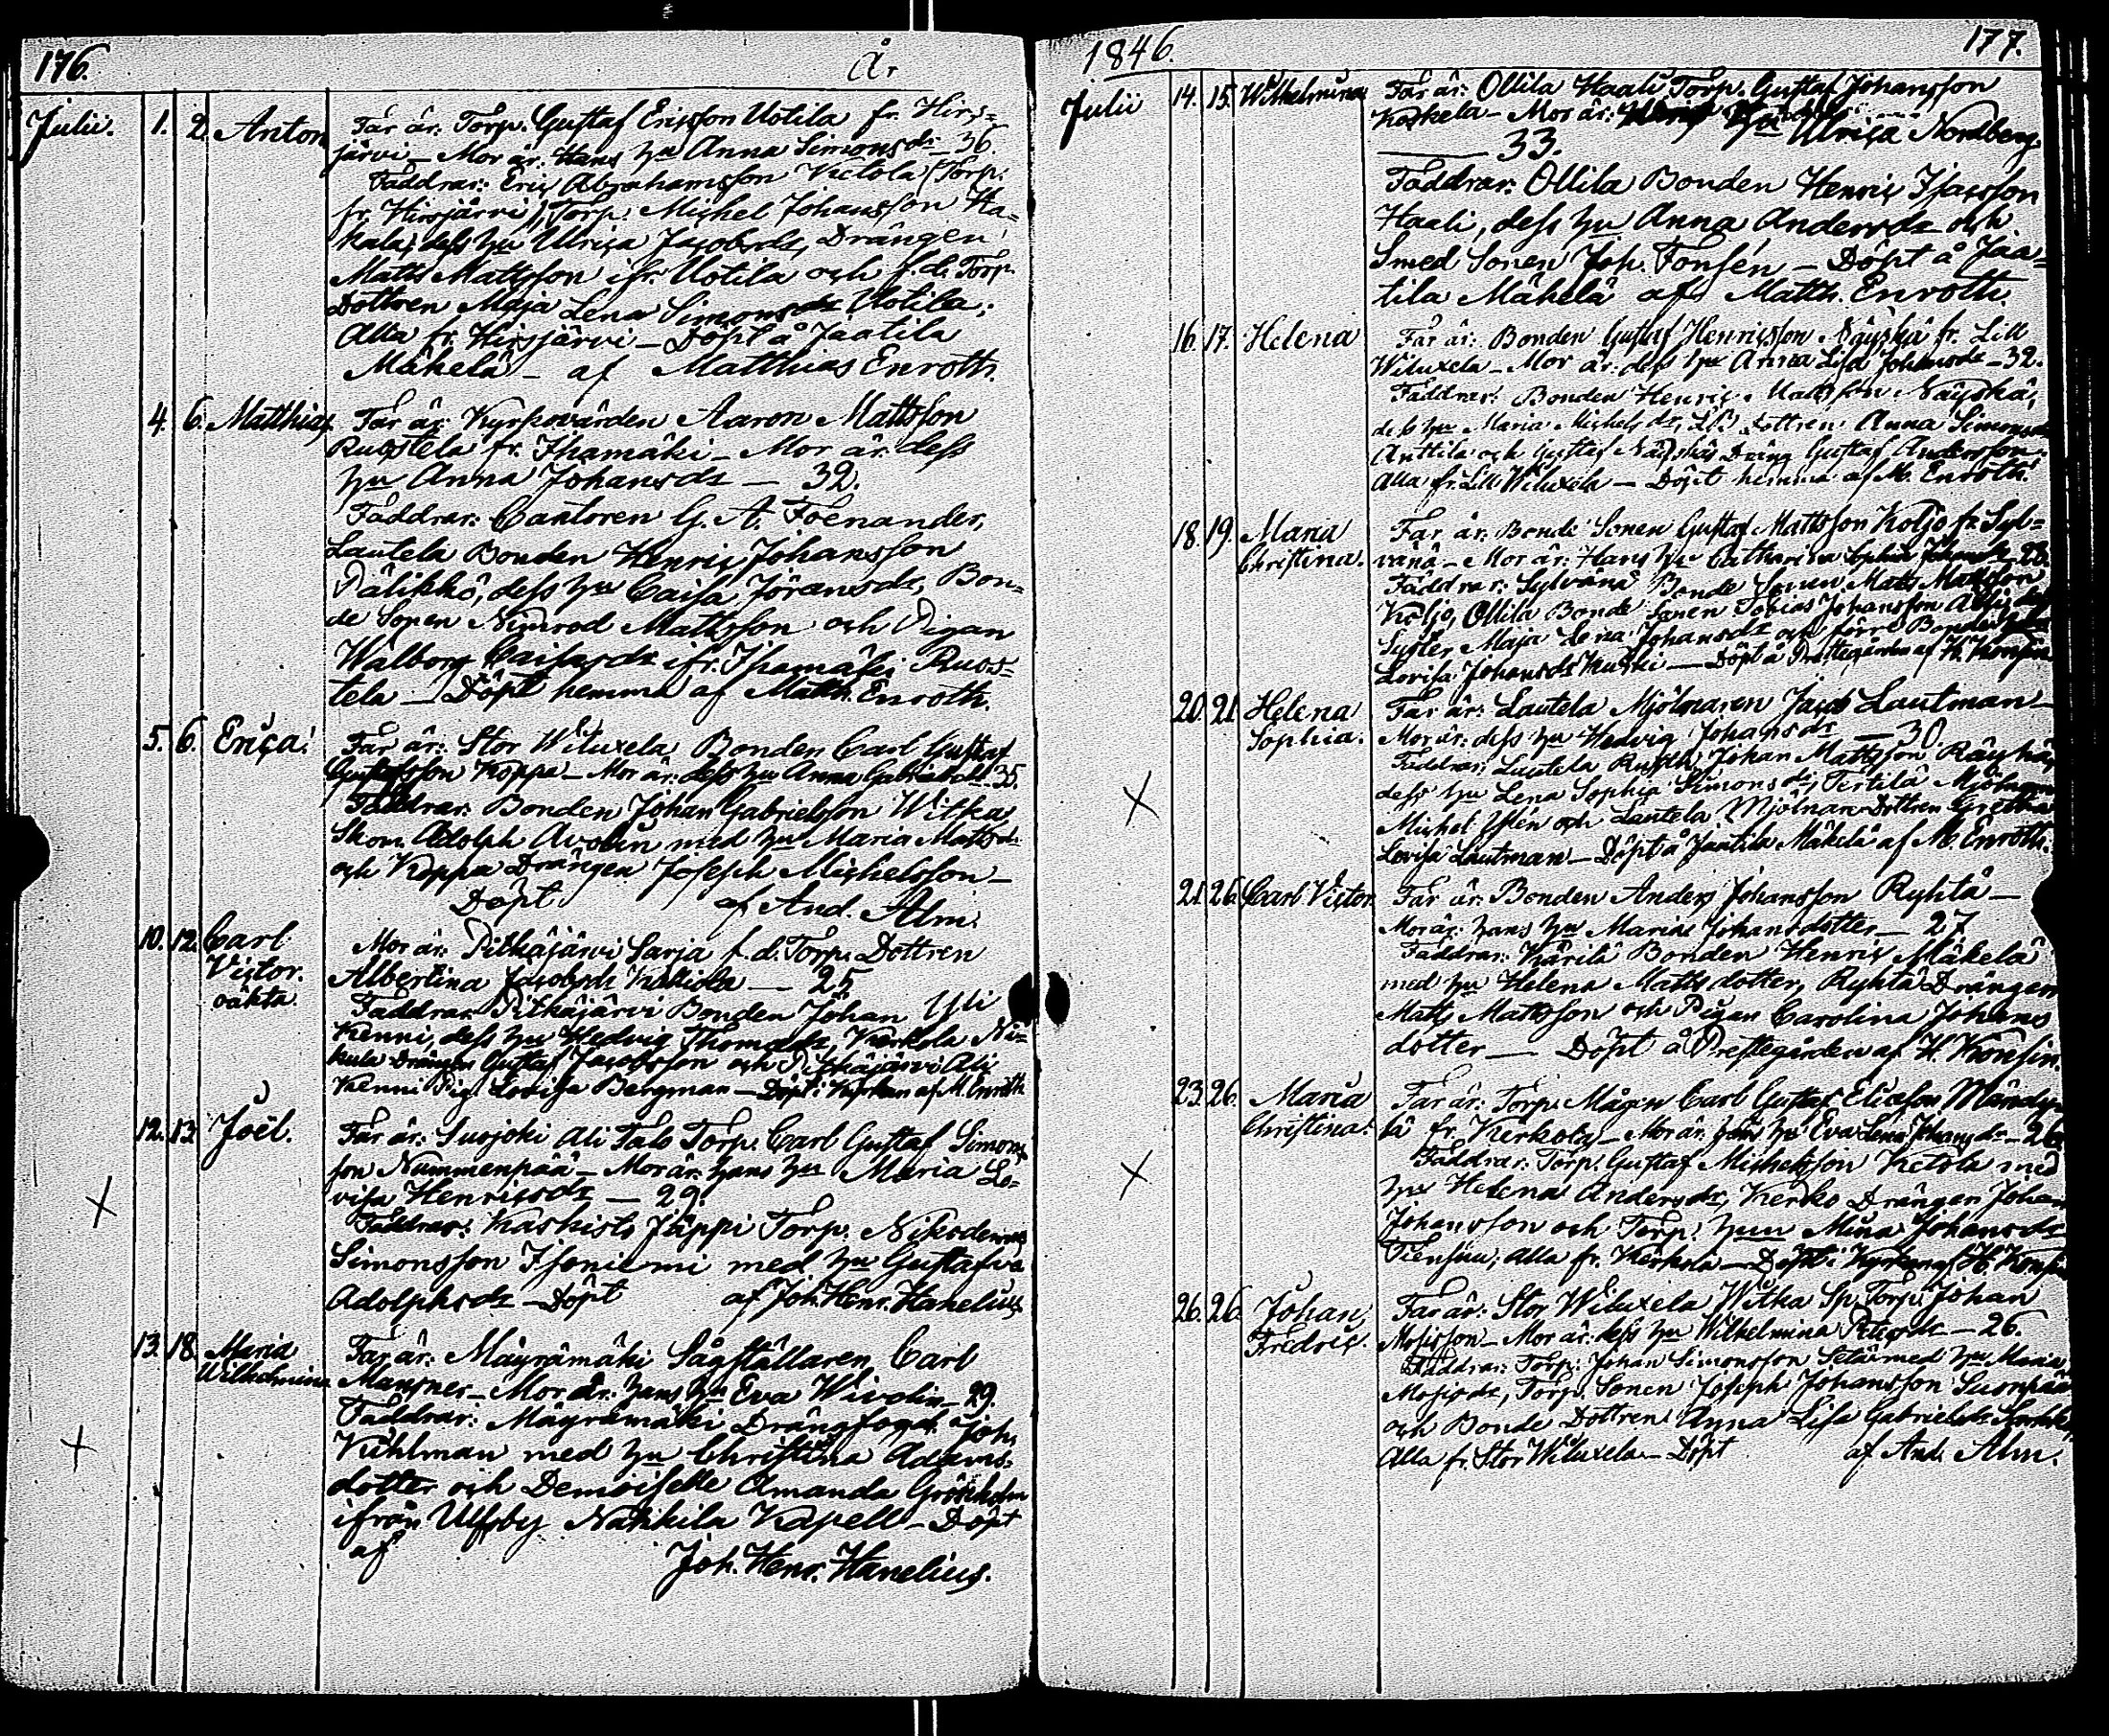 176.
År
Julii.
1. 2. Anton
Far är: Torp. Gustaf Ericsson Uotila fr. Hirs=
järvi – Mor är: Hans hu Anna Simonsdr – 36.
Faddrar: Eric Abrahamsson Ketola (Torp.
fr. Hirsjärvi), Torp. Michel Johansson Ha=
kala, dess hu Ulrica Jacobsdr, Drängen
Matts Mattsson ifr. Uotila och f. d. Torp.
Dottren Maja Lena Simonsdr Uotila;
Alla fr. Hirsjärvi – Döpt å Jaatila
Mäkelä – af Matthias Enroth.
4. 6. Matthias
Far är: Kyrkovärden Aaron Mattsson
Ruostela fr. Ihamäki – Mor är dess
hu Anna Johansdr – 32.
Faddrar: Cantoren G. A. Foenander,
Lautela Bonden Henric Johansson
Pälikkö, dess hu Caisa Jöransdr, Bon=
de Sonen Nimrod Mattsson och Pigan
Walborg Caisasdr ifr. Ihamäki Ruos=
tela – Döpt hemma af Matth. Enroth.
5. 6. Erica.
Far är: Stor Wiluxela Bonden Carl Gustaf
Gustafsson Koppa – Mor är: dess hu Anna Gabrielsdr 35.
Faddrar: Bonden Johan Gabrielsson Witka,
Skom. Adolph Avolin med hu Maria Mattsdr
och Koppa Drängen Joseph Michelsson –
Döpt af And. Alm.
10. 12. Carl
Victor.
oäkta
Mor är: Pitkäjärvi Sarja f. d. Torp. Dottren
Albertina Jacobsdr Kalliola – 25
Faddrar: Pitkäjärvi Bonden Johan Yli
Kenni, dess hu Hedvig Thomasdr, Kerkola Ni=
kula Drängen Gustaf Jacobsson och Pitkäjärvi Ali
Kenni Pig. Lovisa Bergman – Döpt i Kyrkan af M. Enroth
12. 13. Joël.
Far är: Suojoki Ali Talo Torp. Carl Gustaf Simons
son Nummenpää – Mor är: hans hu Maria Lo=
visa Henricsdr – 29.
Faddrar: Kaskisto Jäppi Torp. Nikodemus
Simonsson Isoniemi med hu Gustafva
Adolphsdr – Döpt af Joh. Henr. Hanelius
13. 18. Maria
Wilhelmina
Far är: Mäyrämäki Sågställaren Carl
Mausner – Mor är: hans hu Eva Wivolin – 29.
Faddrar: Mäyrämäki Drängfogd. Joh.
Kuhlman med hu Christina Adams=
dotter och Demoiselle Amanda Grönholm
ifrån Ulfsby Nakkila Kapell – Döpt
af Joh. Henr. Hanelius.
1846.
177.
Julii
14. 15. Wilhelmina
Far är: Ollila Haali Torp. Gustaf Johansson
Koskela – Mor är: hu Ulrica Nordberg
– 33.
Faddrar: Ollila Bonden Henric Isacsson
Haali, dess hu Anna Andersdr och
Smed Sonen Joh. Fonsén – Döpt å Jaa=
tila Mäkelä af Matth. Enroth.
16. 17. Helena
Far är: Bonden Gustaf Henricsson Näyskä fr. Lill
Wiluxela – Mor är: dess hu Anna Lisa Johansdr – 32.
Faddrar: Bonden Henric Mattsson Näyskä,
dess hu Maria Michelsdr, Dottren Anna Simonsdr
Anttila och Gustaf Näyskäs Dräng Gustaf Andersson;
Alla fr. Lill Wiluxela – Döpt hemma af M. Enroth.
18. 19. Maria
Christina.
Far är: Bonde Sonen Gustaf Mattsson Koljo fr. Syl=
vänä – Mor är: Hans hu Catharina Sophia Johansdr 28.
Faddrar: Sylvänä Bonde Sonen Matts Mattsson
Koljo, Ollila Bonde Sonen Tobias Johansson
Syster Maja Lena Johansdr och förre Bonde
Lovisa Johansdr Kurki – Döpt å Prestegården af H. Konsin
20. 21. Helena
Sophia.
Far är: Lautela Mjölnaren Jacob Lautman –
Mor är: dess hu Hedvig Johansdr – 30
Faddrar: Lautela Rusth. Johan Mattsson Räyhä,
dess hu Lena Sophia Simonsdr, Tertilä Mjölnaren
Michel Islén och Lautela Mjölnare Dottren Gretha
Lovisa Lautman – Döpt å Jaatila Mäkelä af M. Enroth.
21. 26. Carl Victor
Far är: Bonden Anders Johansson Ryhtä –
Mor är: hans hu Maria Johansdotter – 27
Faddrar: Käritä Bonden Henric Mäkelä
med hu Helena Mattsdotter, Ryhtä Drängen
Matts Mattsson och Pigan Carolina Johans
dotter – Döpt å Prestegården af H. Konsin.
23. 26. Maria
Christina.
Far är: Torp. Mågen Carl Gustaf Elicsson
fr. Kerkola – Mor är: hans hu Eva Lena Johansdr – 26
Faddrar: Torp. Gustaf Michelsson Ketola med
hu Helena Andersdr, Kerko Drängen Johan
Johansson och Torp. hun Mina Johansdr
Tiensuu; Alla fr. Kerkola – Döpt i Kyrkan af H. Konsin
26. 26. Johan
Fredric.
Far är: Stor Wiluxela Witka Sp. Torp. Johan
Mosisson – Mor är: dess hu Wilhelmina Petersdr – 26.
Faddrar: Torp. Johan Simonsson Setä med hu Maria
Mosisdr, Torp. Sonen Joseph Johansson Suonpää
och Bonde Dottren Anna Lisa Gabrielsdr
Alla fr. Stor Wiluxela – Döpt af And. Alm.